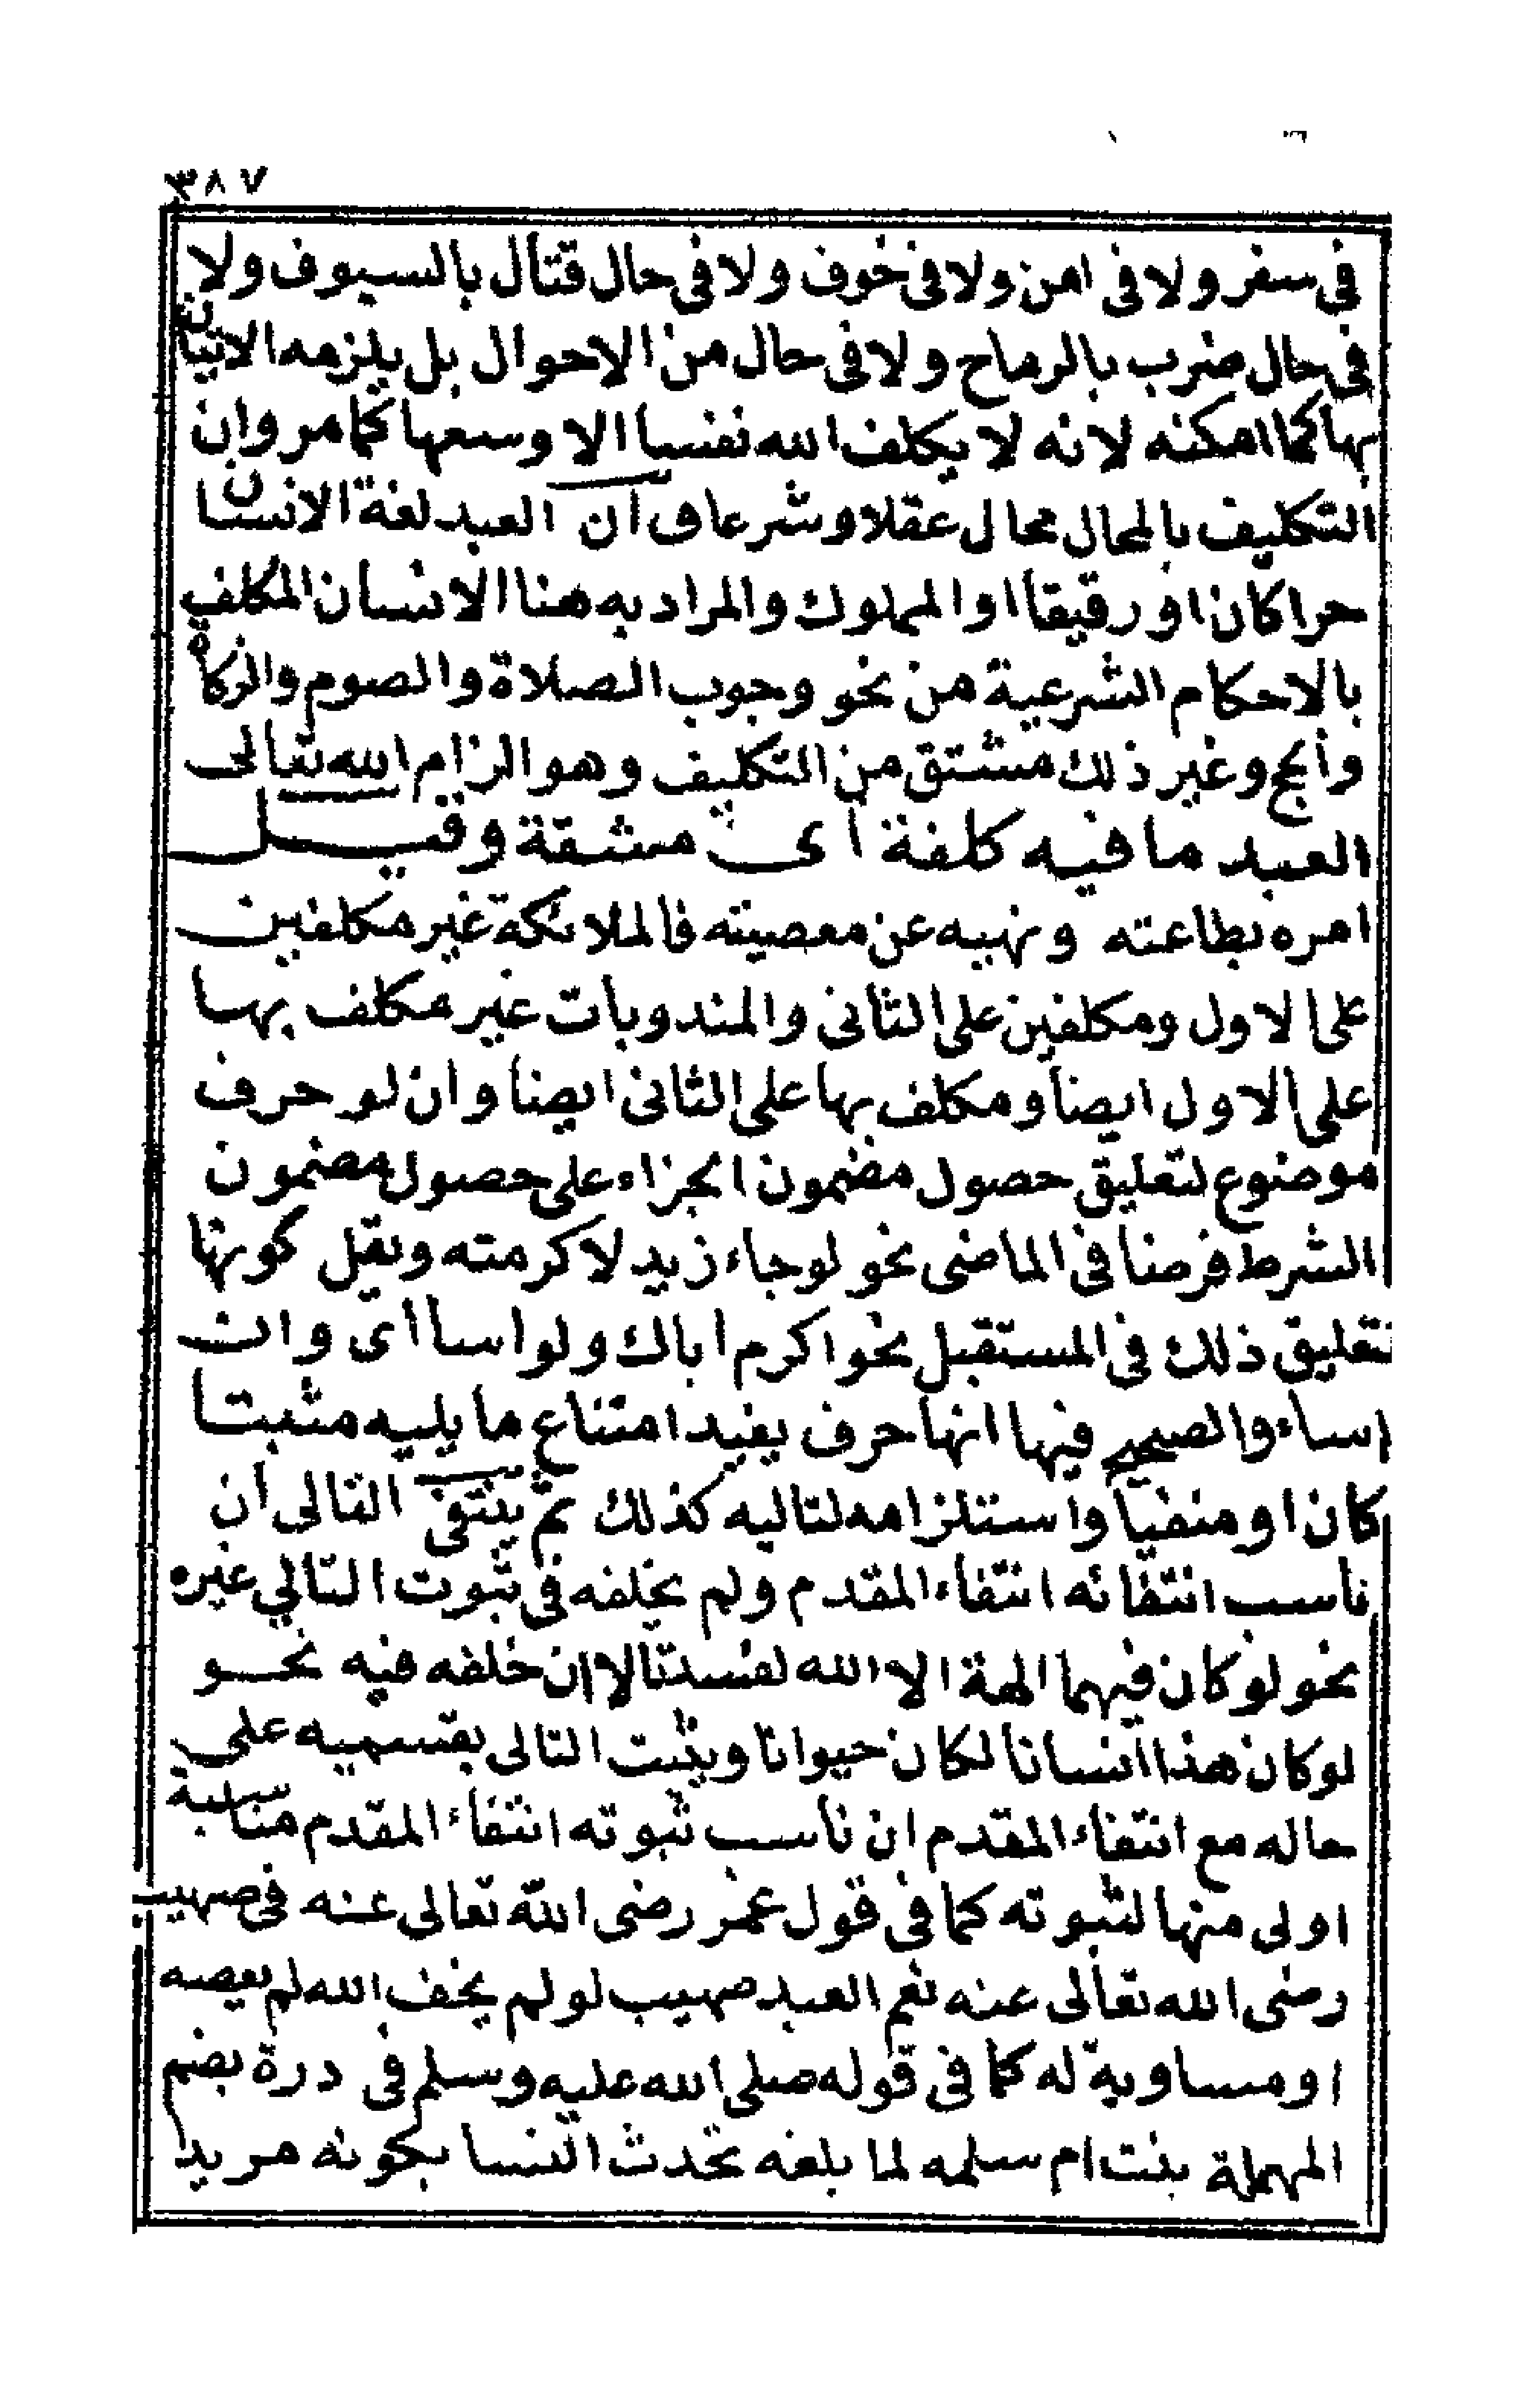 ٣٨٧
في سفر ولا في امن ولا في خوف ولا في حال قتال بالسيوف ولا
في حال ضرب بالرماح ولا في حال من الاحوال بل يلزمه الاتيان
بها كما امكنه لانه لا يكلف الله نفسا الا وسعها كما مر وان
التكليف بالمحال محال عقلا وشرعا وان العبد لغة الانسان
حرا كان او رقيقا او المملوك والمراد به هنا الانسان المكلف
بالاحكام الشرعية من نحو وجوب الصلاة والصوم والزكاة
والحج وغير ذلك مشتق من التكليف وهو الزام الله تعالى
العبد ما فيه كلفة اى مشقة وقيل
امره بطاعته ونهيه عن معصيته فالملائكة غير مكلفين
على الاول ومكلفين على الثانى والمندوبات غير مكلف بها
على الاول ايضا ومكلف بها على الثانى ايضا وان لو حرف
موضوع لتعليق حصول مضمون الجزاء على حصول مضمون
الشرط فرضا في الماضى نحو لو جاء زيد لاكرمته ونقل كونها
لتعليق ذلك في المستقبل نحو اكرم اباك ولو اسا اى وان
اساء والصحيح فيها انها حرف يفيد امتناع ما يليه مثبتا
كان او منفيا واستلزامه لتاليه كذلك ثم ينتفى التالى ان
ناسب انتفائه انتفاء المقدم ولم يخلفه في ثبوت التالي غيره
نحو لو كان فيهما الهة الا الله لفسدتا لا ان خلفه فيه نحو
لو كان هذا انسانا لكان حيوانا ويثبت التالى بقسميه على
حاله مع انتفاء المقدم ان ناسب ثبوته انتفاء المقدم مناسبة
اولى منها لثبوته كما في قول عمر رضى الله تعالى عنه في صهيب
رضى الله تعالى عنه نعم العبد صهيب لو لم يخف الله لم يعصه
او مساوية له كما في قوله صلى الله عليه وسلم في درة بضم
المهملة بنت ام سلمه لما بلغه تحدث النسا بكونه مريد